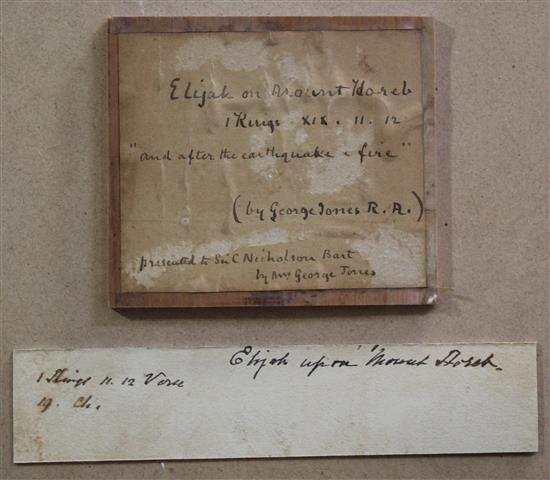 Elijah on Mount Horeb
1 Kings XIX. 11. 12
"and after the earthquake a fire"
(by George Jones R. A.)
presented to Sir C Nicholson Bart
by Mrs George Jones
Elijah upon Mount Horeb.
1 Kings 11. 12 Verse
19. Ch.